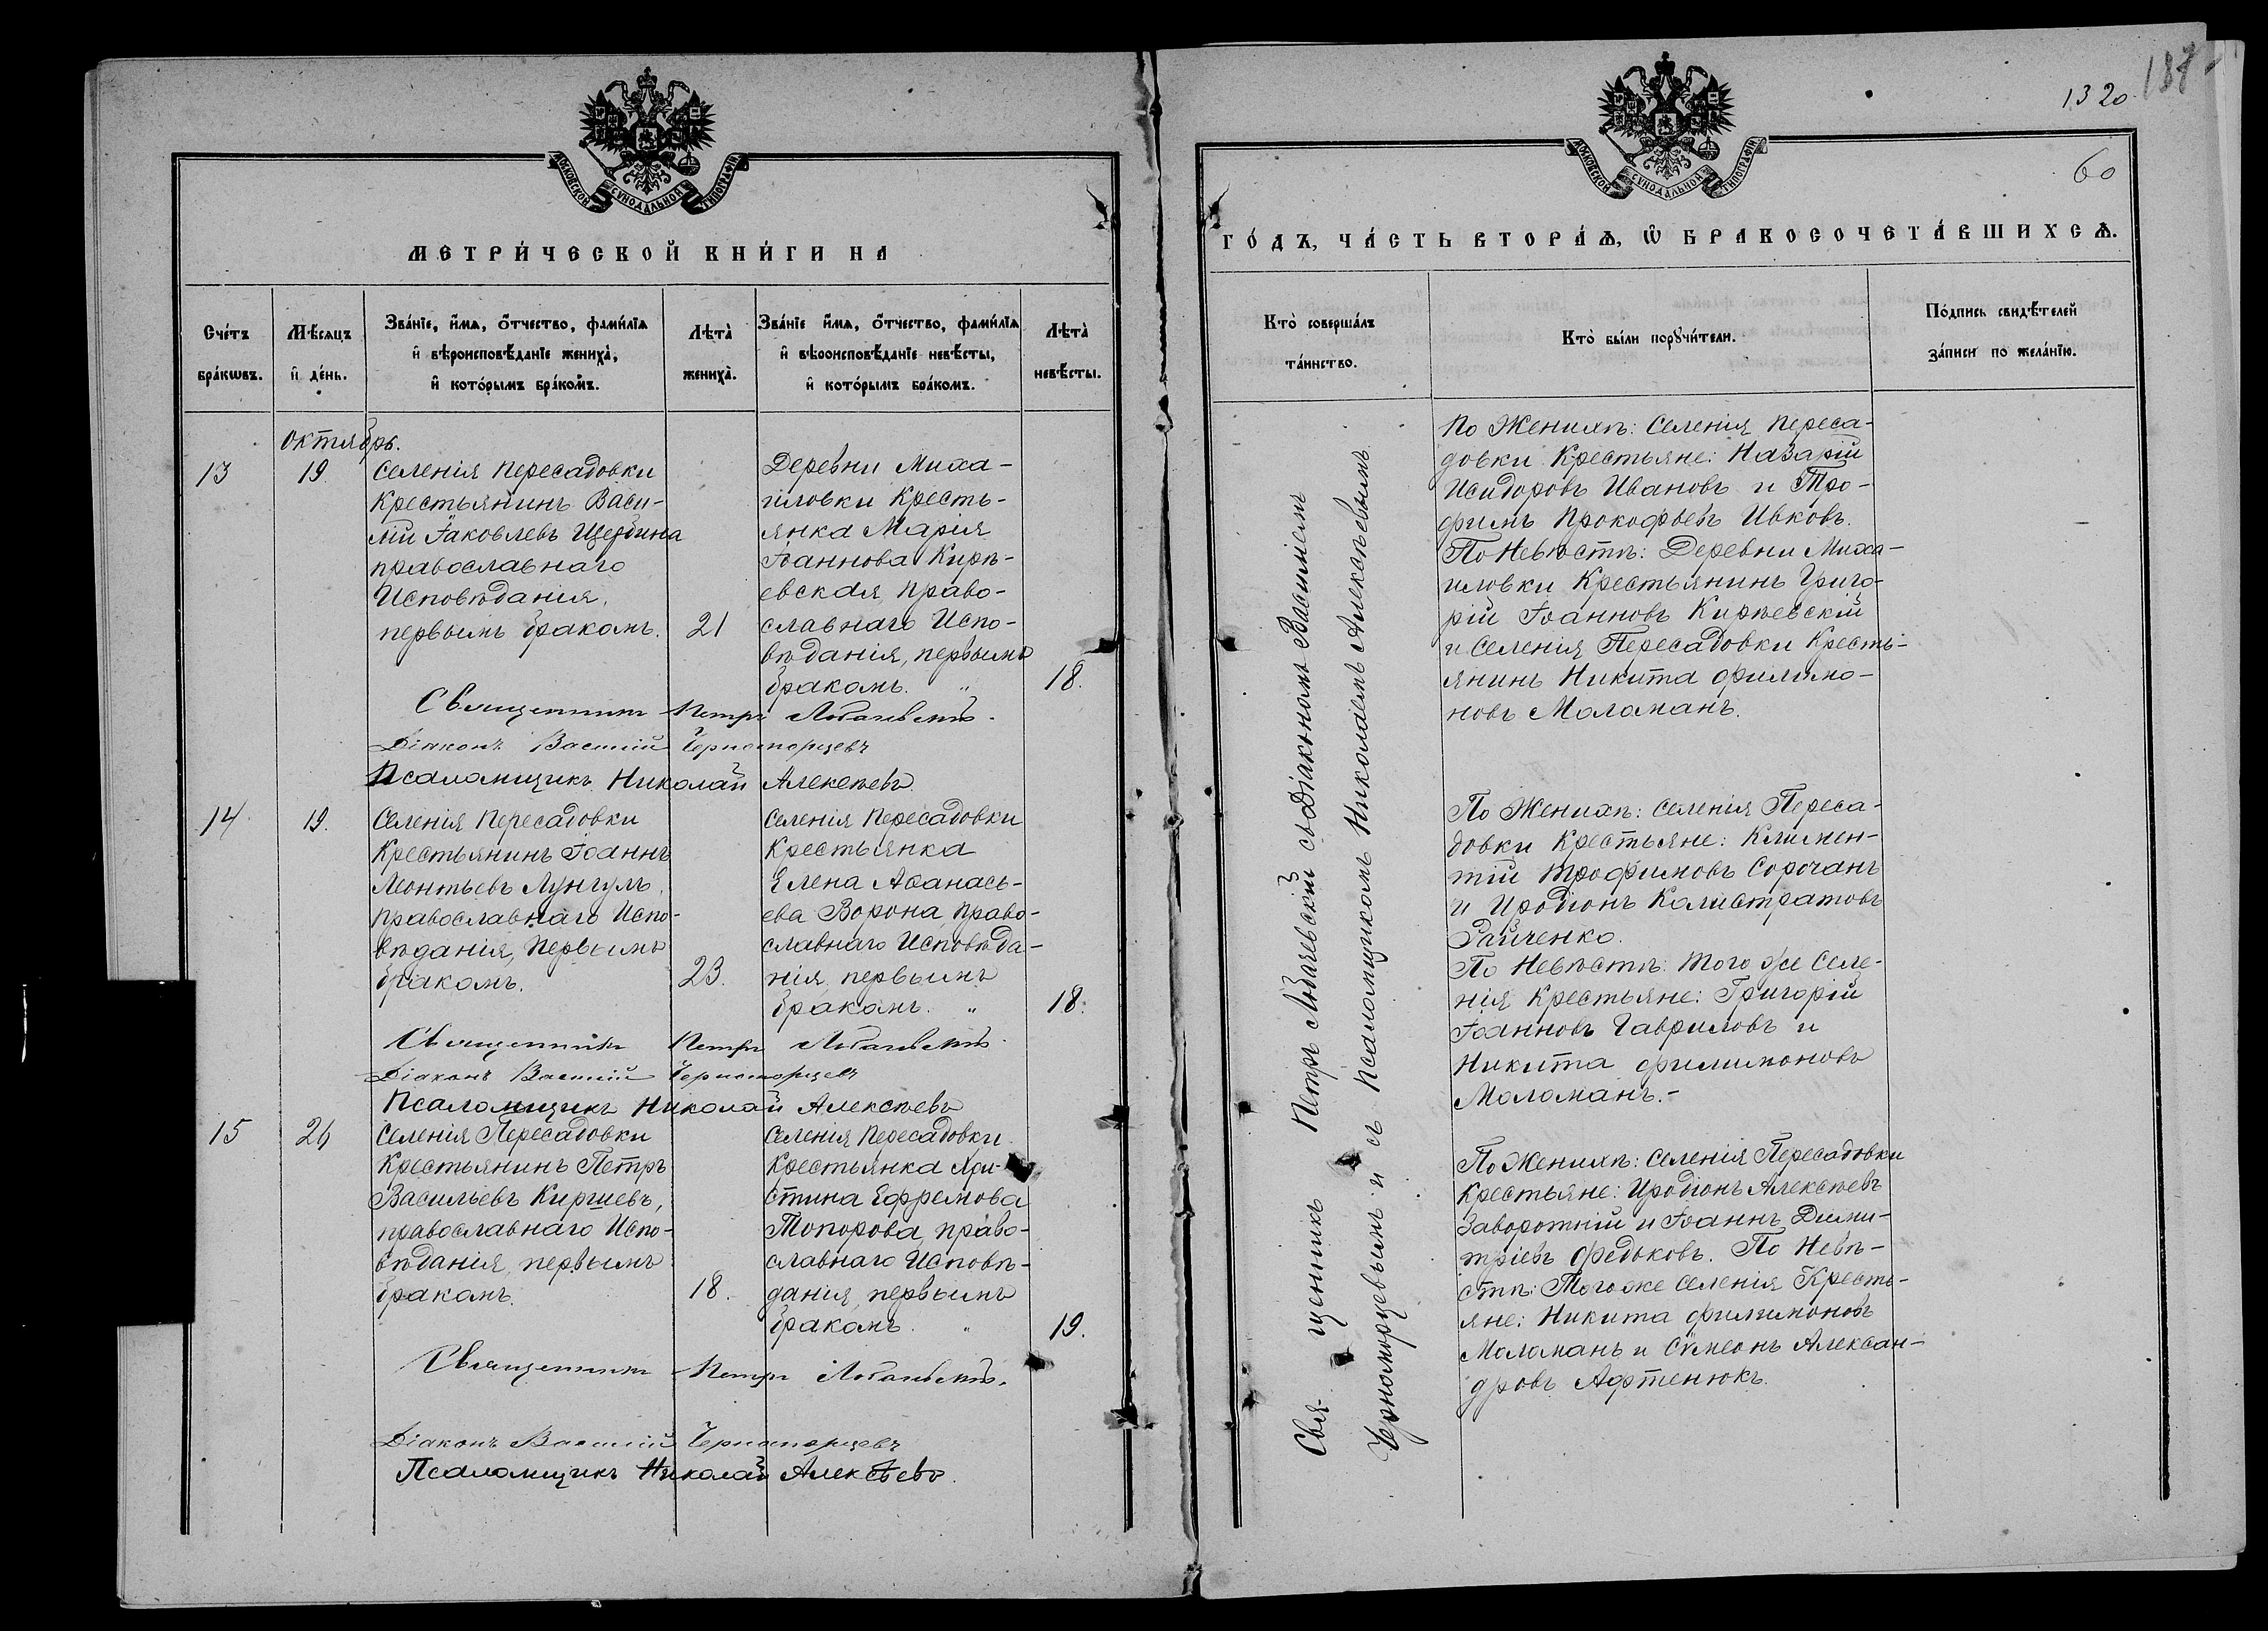 МОСКОВСКОЙ СѴНОДАЛЬНОЙ ТИПОГРАФІИ
МЕТРИ́ЧЕСКОЙ КНИ́ГИ НА
Сче́тъ бра́кѡвъ.
Мѣ́сяцъ и҆ де́нь.
Зва́нїе, и҆́мѧ, ѻ҆́тчество, фами́лїѧ
и҆ вѣроисповѣ́данїе жениха̀,
и҆ кото́рымъ бра́комъ.
Лѣта̀ жениха̀.
Зва́нїе и҆́мѧ, ѻ҆́тчество, фами́лїѧ
и҆ вѣроисповѣ́данїе невѣ́сты,
и҆ кото́рымъ бра́комъ.
Лѣта̀ невѣ́сты.
Октябрь.
13
19.
Селенія Пересадовки
Крестьянинъ Васи-
лій Іаковлевъ Щербина
православнаго
Исповѣданія,
первымъ бракомъ.
21
Деревни Миха-
иловки Кресть-
янка Марія
Іоаннова Кирѣ-
евская, право-
славнаго Испо-
вѣданія, первымъ
бракомъ. "
18.
Священникъ Петръ Любачевскій.
Діаконъ Василій Черноморцевъ
Псаломщикъ Николай Алексѣевъ.
14
19.
Селенія Пересадовки
Крестьянинъ Іоаннъ
Леонтьевъ Лунгулъ,
православнаго Испо-
вѣданія, первымъ
бракомъ.
23.
Селенія Пересадовки
Крестьянка
Елена Аѳанась-
ева Ворона, право-
славнаго Исповѣда-
нія, первымъ
бракомъ. "
18.
Священникъ Петръ Любачевскій.
Діаконъ Василій Черноморцевъ
Псаломщикъ Николай Алексѣевъ
15
26
Селенія Пересадовки
Крестьянинъ Петръ
Васильевъ Киршевъ,
православнаго Испо-
вѣданія, первымъ
бракомъ.
18.
Селенія Пересадовки
Крестьянка Хри-
стина Ефремова
Топорова, право-
славнаго Исповѣ-
данія, первымъ
бракомъ. "
19.
Священникъ Петръ Любачевскій.
Діаконъ Василій Черноморцевъ
Псаломщикъ Николай Алексѣевъ.
1320
60
МОСКОВСКОЙ СѴНОДАЛЬНОЙ ТИПОГРАФІИ
ГО́ДЪ, ЧА́СТЬ ВТОРА́Ѧ, Ѡ҆ БРАКОСОЧЕТА́ВШИХСѦ.
Кто̀ соверша́лъ
та́инство.
Кто̀ бы́ли порꙋчи́тели.
По́дпись свидѣ́телей
за́писи по жела́нїю.
Священникъ Петръ Любачевскій съ Діакономъ Василіемъ
Черноморцевымъ и съ Псаломщикомъ Николаемъ Алексѣевымъ
По Женихѣ: Селенія Переса-
довки Крестьяне: Назарій
Исидоровъ Ивановъ и Тро-
фимъ Прокофьевъ Ивковъ.
По Невѣстѣ: Деревни Миха-
иловки Крестьянинъ Григо-
рій Іоанновъ Кирѣевскій
и Селенія Пересадовки Кресть-
янинъ Никита Филимо-
новъ Моломанъ.
По Женихѣ: Селенія Переса-
довки Крестьяне: Климен-
тій Трофимовъ Сорочанъ
и Иродіонъ Калистратовъ
Райченко.
По Невѣстѣ: того же Селе-
нія Крестьяне: Григорій
Іоанновъ Гавриловъ и
Никита Филимоновъ
Моломанъ.-
По Женихѣ: Селенія Пересадовки
Крестьяне: Иродіонъ Алексѣевъ
Заворотній и Іоаннъ Дими-
тріевъ Федьковъ. По Невѣ-
стѣ: Тогоже Селенія Кресть-
яне: Никита Филимоновъ
Моломанъ и Сѵмеонъ Алексан-
дровъ Афтенюкъ.